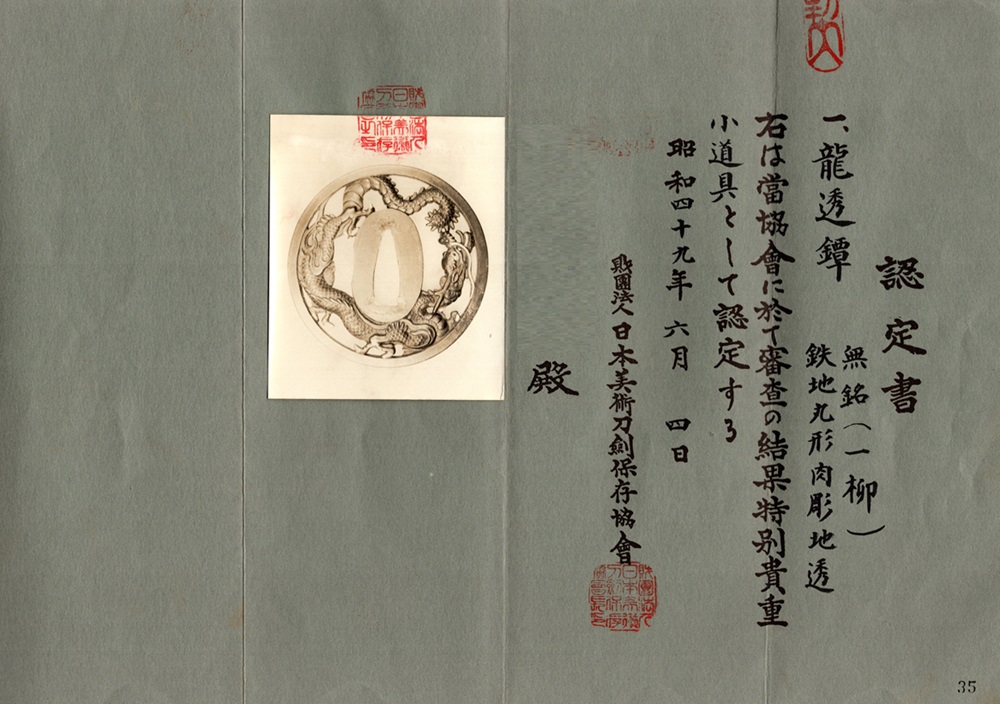 認定書
一、龍透鐔
無銘(一柳)
鉄地丸形肉彫地透
右は當協會に於て審査の結果特別貴重
小道具として認定する
昭和四十九年 六月 四日
財團法人日本美術刀劍保存協會
殿
35